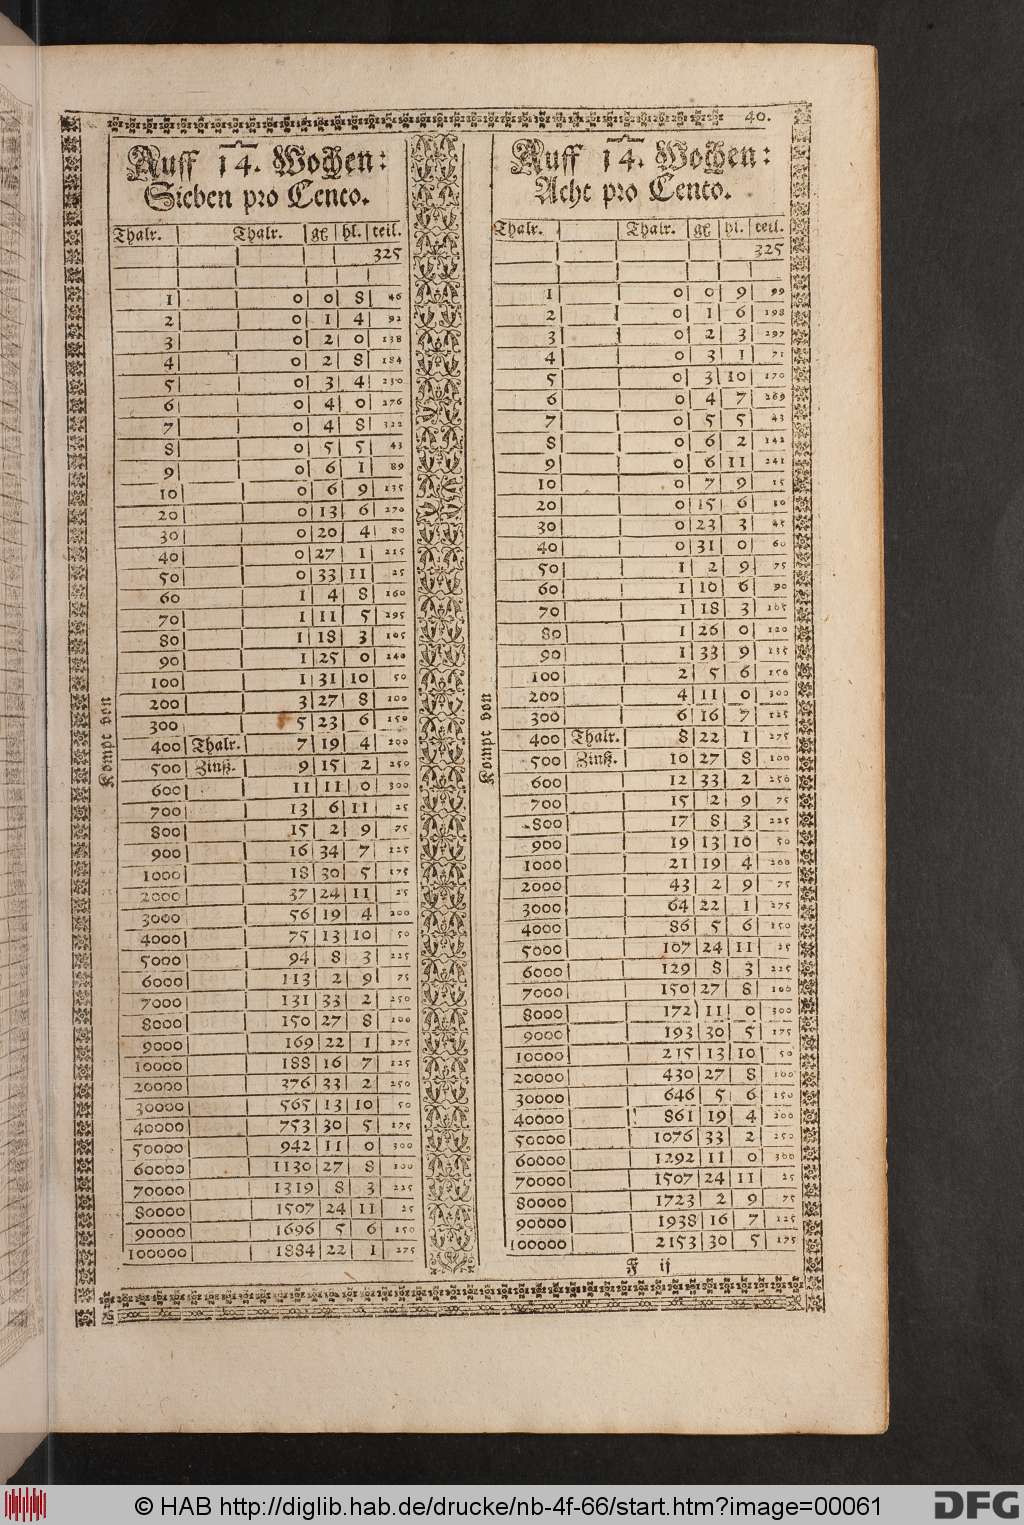 40.
Auff 14. Wochen:
Sieben pro Cento.
Thalr. Thalr. gß hl. teil.
325
1 0 0 8 46
2 0 1 4 92
3 0 2 0 138
4 0 2 8 184
5 0 3 4 230
6 0 4 0 276
7 0 4 8 322
8 0 5 5 43
9 0 6 1 89
10 0 6 9 135
20 0 13 6 270
30 0 20 4 80
40 0 27 1 215
50 0 33 11 25
60 1 4 8 160
70 1 11 5 295
80 1 18 3 105
90 1 25 0 240
100 1 31 10 50
200 3 27 8 100
300 5 23 6 150
400 Thalr. 7 19 4 200
500 Zinß. 9 15 2 250
600 11 11 0 300
700 13 6 11 25
800 15 2 9 75
900 16 34 7 125
1000 18 30 5 175
2000 37 24 11 25
3000 56 19 4 200
4000 75 13 10 50
5000 94 8 3 225
6000 113 2 9 75
7000 131 33 2 250
8000 150 27 8 100
9000 169 22 1 275
10000 188 16 7 125
20000 376 33 2 250
30000 565 13 10 50
40000 753 30 5 175
50000 942 11 0 300
60000 1130 27 8 100
70000 1319 8 3 225
80000 1507 24 11 25
90000 1696 5 6 150
100000 1884 22 1 275
Kompt von
Auff 14. Wochen:
Acht pro Cento.
Thalr. Thalr. gß hl. teil.
325
1 0 0 9 99
2 0 1 6 198
3 0 2 3 297
4 0 3 1 71
5 0 3 10 170
6 0 4 7 269
7 0 5 5 43
8 0 6 2 142
9 0 6 11 241
10 0 7 9 15
20 0 15 6 30
30 0 23 3 45
40 0 31 0 60
50 1 2 9 75
60 1 10 6 90
70 1 18 3 105
80 1 26 0 120
90 1 33 9 135
100 2 5 6 150
200 4 11 0 300
300 6 16 7 125
400 Thalr. 8 22 1 275
500 Zinß. 10 27 8 100
600 12 33 2 250
700 15 2 9 75
800 17 8 3 225
900 19 13 10 50
1000 21 19 4 200
2000 43 2 9 75
3000 64 22 1 275
4000 86 5 6 150
5000 107 24 11 25
6000 129 8 3 225
7000 150 27 8 100
8000 172 11 0 300
9000 193 30 5 175
10000 215 13 10 50
20000 430 27 8 100
30000 646 5 6 150
40000 861 19 4 200
50000 1076 33 2 250
60000 1292 11 0 300
70000 1507 24 11 25
80000 1723 2 9 75
90000 1938 16 7 125
100000 2153 30 5 175
Kompt von
F ij
© HAB http://diglib.hab.de/drucke/nb-4f-66/start.htm?image=00061
DFG